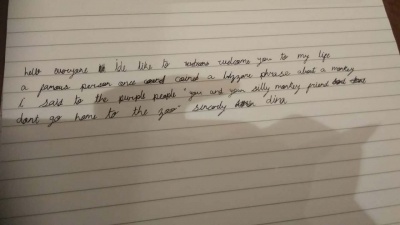 hello everyone I'd like to welcome you to my life
a famous person once coined a bizzare phrase about a monkey
I said to the purple people "you and your silly monkey friend
dont go home to the zoo" sincerly dina